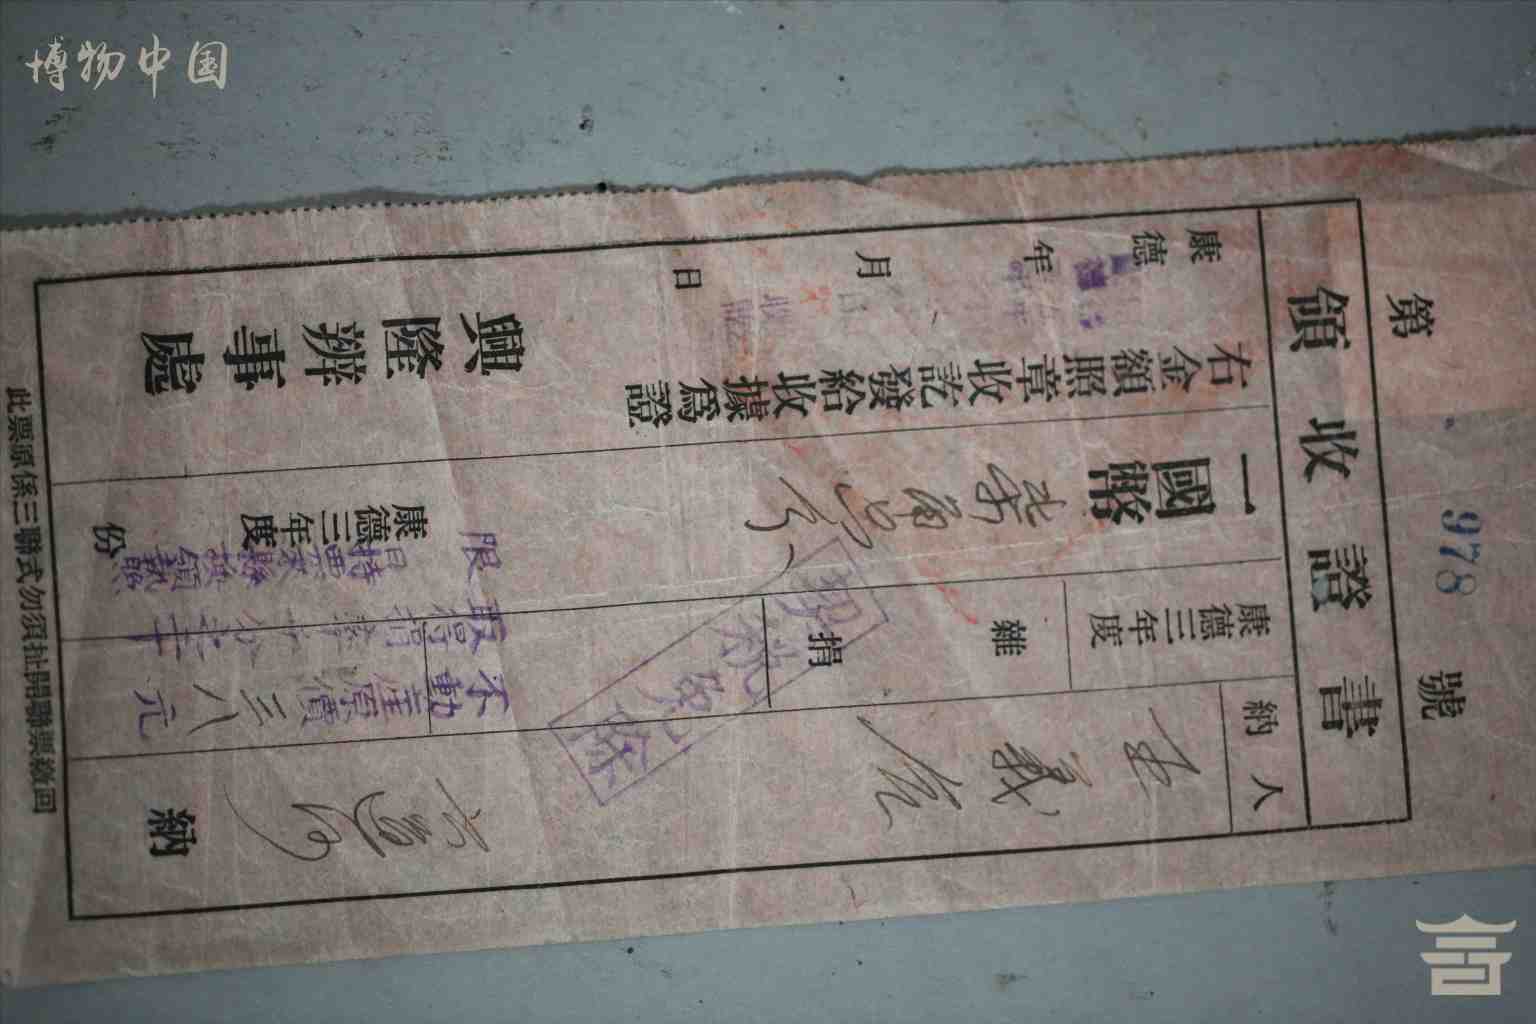 博物中国
第 978 號
領收證書
納人
王義合
六道河 納
康德三年度
雜捐
不動產原價 三八元
契税免除
一國幣
康德三年度份
右金額照章收訖發給收據爲證
康德 年 月 日
興隆辦事處
此票原係三聯式勿須扯開聯票繳回